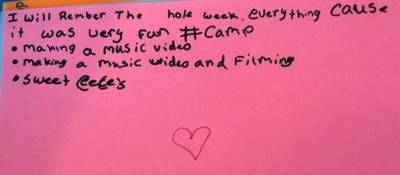 I will Rember The hole week, everything cause
it was very fun #camp
• making a music video
• making a music video and Filming
• sweet